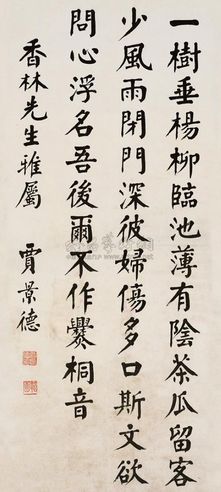 一樹垂楊柳臨池薄有陰茶瓜留客
少風雨閉門深彼婦傷多口斯文欲
問心浮名吾後爾不作爨桐音
香林先生雅屬
賈景德